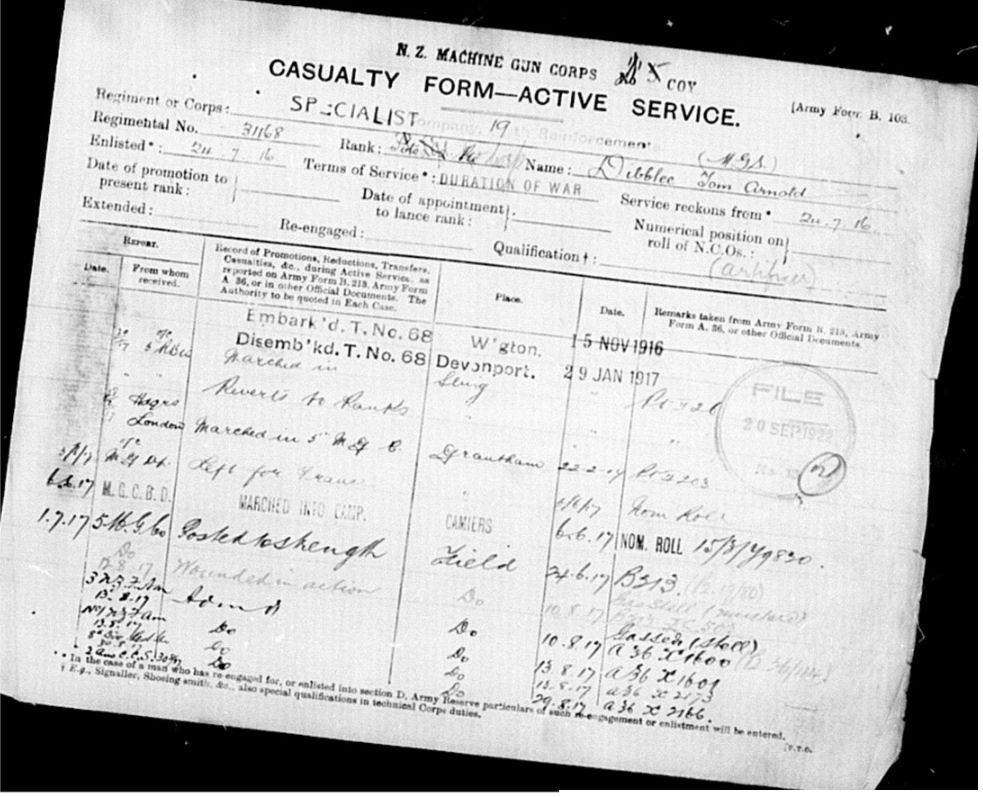 N. Z. MACHINE GUN CORPS 5 COY
CASUALTY FORM—ACTIVE SERVICE.
[Army Form B. 103.
Regiment or Corps: SPECIALIST Company, 19th Reinforcements (M.G.S.)
Regimental No. 31168 Rank: Name: Dibblee Tom Arnold
Enlisted*: 24.7.16 Terms of Service*: DURATION OF WAR Service reckons from* 24.7.16
Date of promotion to present rank: Date of appointment to lance rank: Numerical position on roll of N.C.Os.:
Extended: Re-engaged: Qualification†: (artificer)
Report.
Date. From whom received. Record of Promotions, Reductions, Transfers, Casualties, &c., during Active Service, as reported on Army Form B. 213, Army Form A. 36, or in other Official Documents. The Authority to be quoted in Each Case. Place. Date. Remarks taken from Army Form B. 213, Army Form A. 36, or other Official Documents.
Embark'd. T. No. 68 W'gton. 15 NOV 1916
Disemb'kd. T. No. 68 Devonport. 29 JAN 1917
Marched in Sling
Reverts to Ranks
Hdqrs London Marched in 5 M G C Grantham 22-2-17 Pt II 203
Left for France Nom Roll
6.6.17 M.G.C.B.D. MARCHED INTO CAMP. CAMIERS 6.6.17 NOM. ROLL 15/3/49820.
1.7.17 5 M.G.Co Posted to strength Field 24.6.17 B213.
Do 12.8.17 Wounded in action Do 10.8.17 Gas Shell (mustard)
3 NZ F Am 13.8.17 Adm d Do 10.8.17 Gassed (Shell) A36 X1600
No 1 NZ F am 13.8.17 Do Do 13.8.17 A36 X1601
Do Do 13.8.17 A36 X 2173
Do Do 29.8.17 A36 X 2166.
FILE
20 SEP 1922
* In the case of a man who has re-engaged for, or enlisted into section D, Army Reserve particulars of such re-engagement or enlistment will be entered.
† E.g., Signaller, Shoeing smith, &c., also special qualifications in technical Corps duties.
[P.T.O.